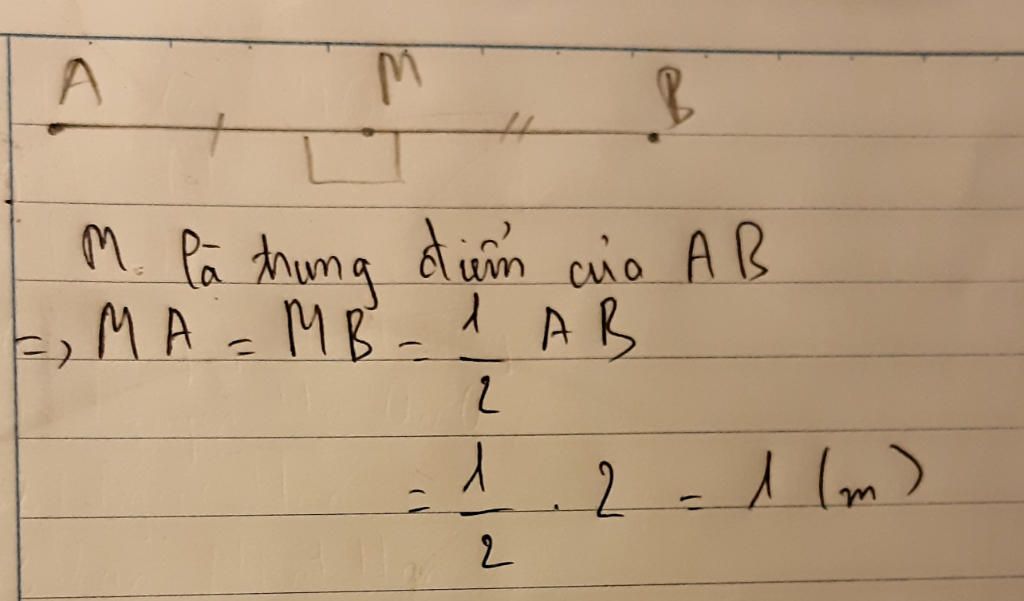 A M B
M là trung điểm của AB
=> MA = MB = 1/2 AB
= 1/2 . 2 = 1 (m)